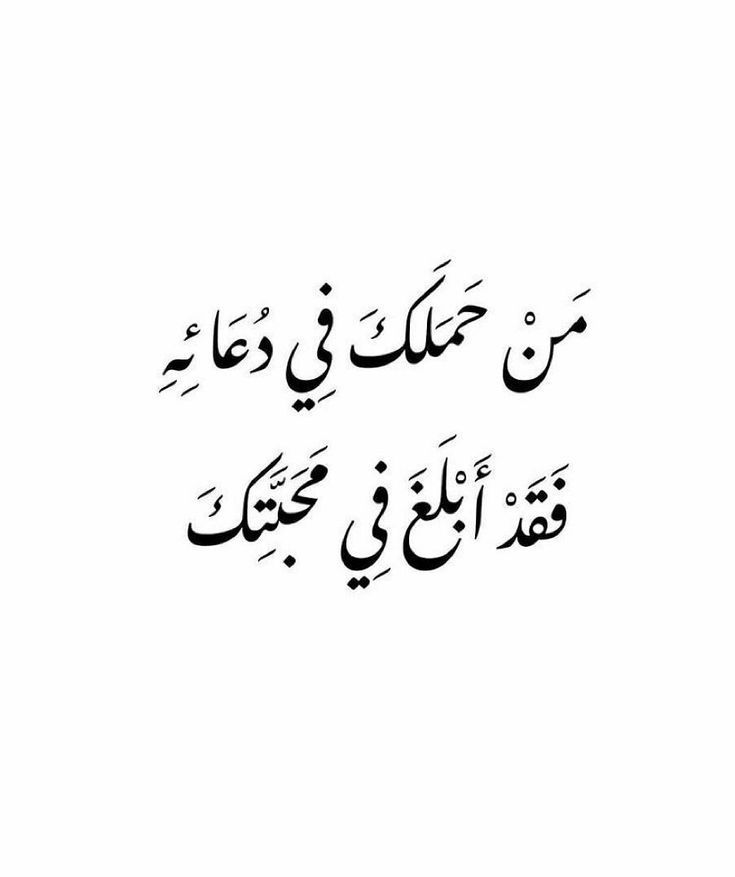 مَنْ حَمَلَكَ فِي دُعَائِهِ
فَقَدْ أَبْلَغَ فِي مَحَبَّتِكَ